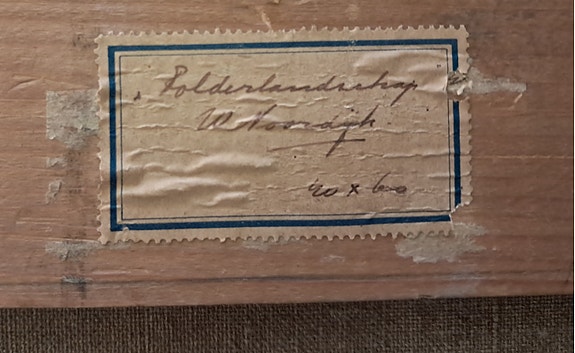 „Polderlandschap
W. Noordijk.
40 x 60